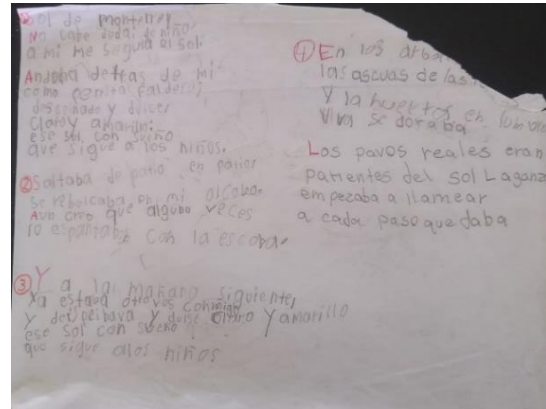 Sol de monterrey
No cabe duda: de niño,
a mi me seguia el sol.
Andaba detras de mi
como perrito faldero;
despeinado y dulce,
claro y amarillo:
ese sol con sueño
que sigue a los niños.
② Saltaba de patio en patio
se revolcaba en mi alcoba.
Aun creo que algunas veces
lo espantaba con la escoba.
③ Y a la mañana siguiente,
ya estava otra ves conmigo
y despeibava y dulse claro y amarillo
ese sol con sueño
que sigue alos niños
④ En los arba
las ascuas de las
Y la huertos en
viva se doraba
Los pavos reales eran
parientes del sol La garza
empezaba a llamear
a cada paso que daba